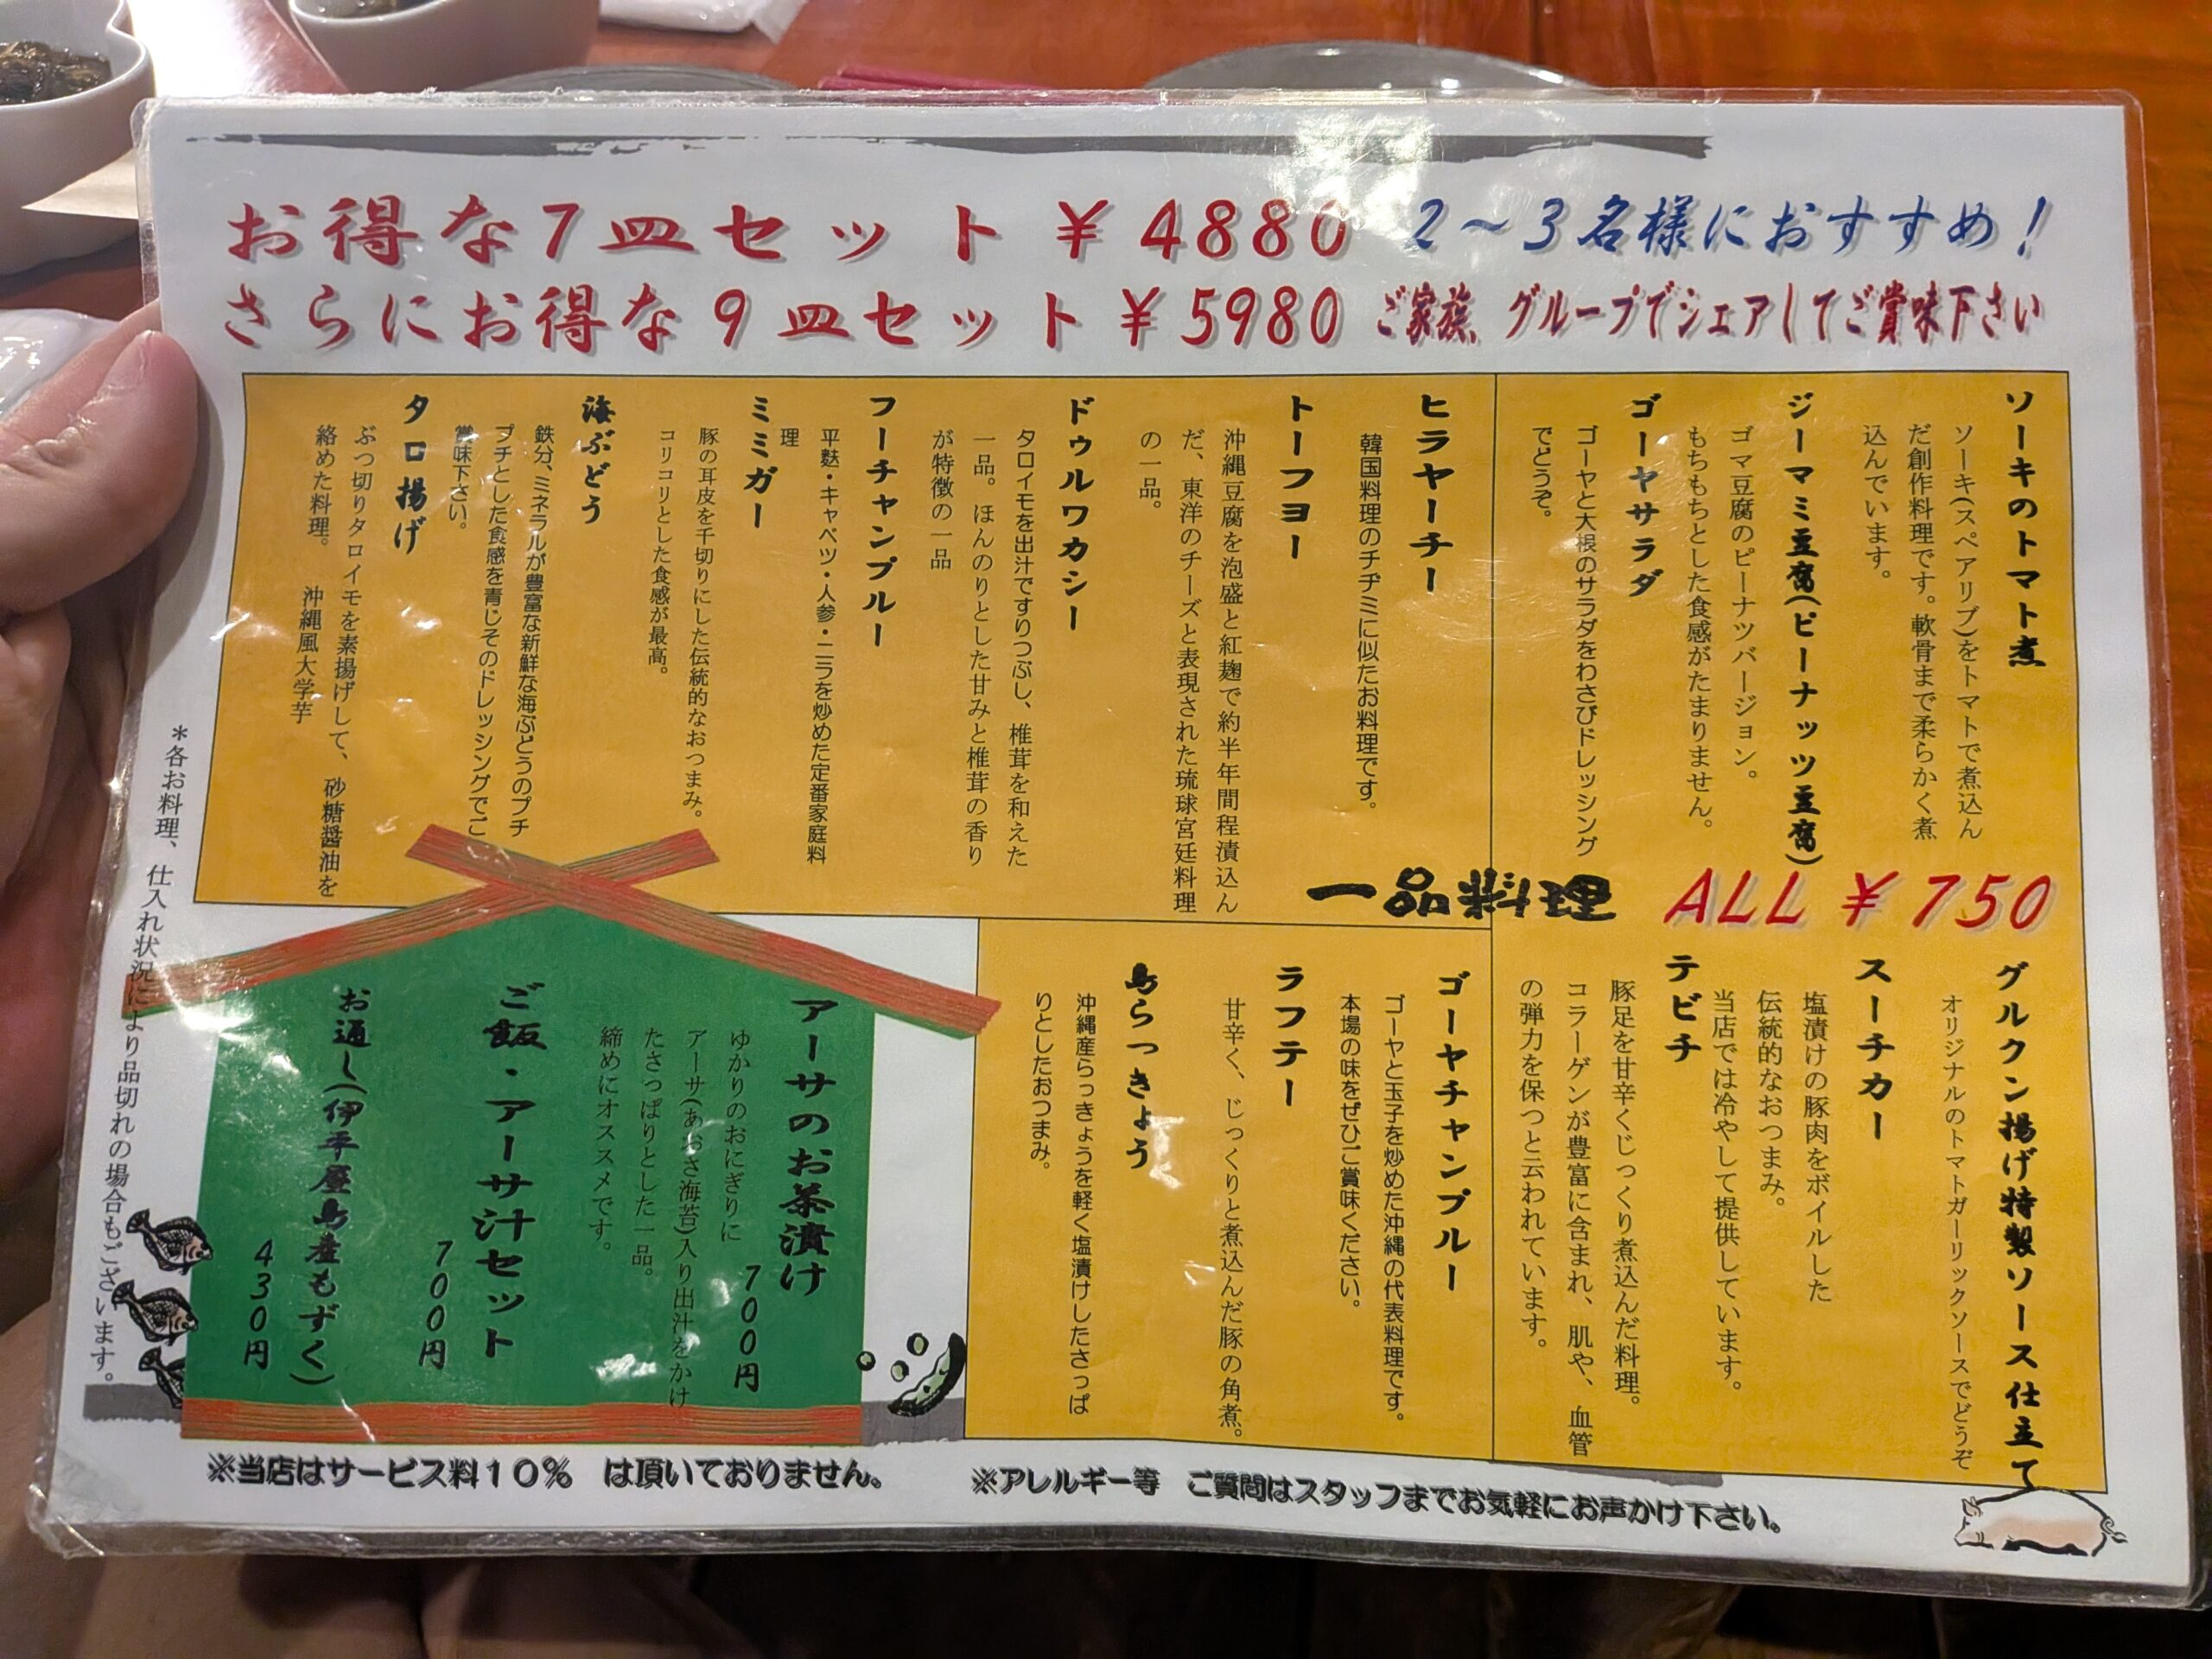 お得な7皿セット ¥4880 2～3名様におすすめ！
さらにお得な9皿セット ¥5980 ご家族、グループでシェアしてご賞味下さい
ソーキのトマト煮
ソーキ(スペアリブ)をトマトで煮込ん
だ創作料理です。軟骨まで柔らかく煮
込んでいます。
ジーマミ豆腐(ピーナッツ豆腐)
ゴマ豆腐のピーナツバージョン。
もちもちとした食感がたまりません。
ゴーヤサラダ
ゴーヤと大根のサラダをわさびドレッシング
でどうぞ。
ヒラヤーチー
韓国料理のチヂミに似たお料理です。
トーフヨー
沖縄豆腐を泡盛と紅麹で約半年間程漬込ん
だ、東洋のチーズと表現された琉球宮廷料理
の一品。
ドゥルワカシー
タロイモを出汁ですりつぶし、椎茸を和えた
一品。ほんのりとした甘みと椎茸の香り
が特徴の一品
フーチャンプルー
平麩・キャベツ・人参・ニラを炒めた定番家庭料
理
ミミガー
豚の耳皮を千切りにした伝統的なおつまみ。
コリコリとした食感が最高。
海ぶどう
鉄分、ミネラルが豊富な新鮮な海ぶどうのプチ
プチとした食感を青じそのドレッシングでご
賞味下さい。
タロ揚げ
ぶつ切りタロイモを素揚げして、砂糖醤油を
絡めた料理。 沖縄風大学芋
一品料理 ALL ¥750
グルクン揚げ特製ソース仕立て
オリジナルのトマトガーリックソースでどうぞ
スーチカー
塩漬けの豚肉をボイルした
伝統的なおつまみ。
当店では冷やして提供しています。
テビチ
豚足を甘辛くじっくり煮込んだ料理。
コラーゲンが豊富に含まれ、肌や、血管
の弾力を保つと云われています。
ゴーヤチャンプルー
ゴーヤと玉子を炒めた沖縄の代表料理です。
本場の味をぜひご賞味ください。
ラフテー
甘辛く、じっくりと煮込んだ豚の角煮。
島らっきょう
沖縄産らっきょうを軽く塩漬けしたさっぱ
りとしたおつまみ。
アーサのお茶漬け
700円
ゆかりのおにぎりに
アーサ(あおさ海苔)入り出汁をかけ
たさっぱりとした一品。
締めにオススメです。
ご飯・アーサ汁セット
700円
お通し(伊平屋島産もずく)
430円
＊各お料理、仕入れ状況により品切れの場合もございます。
※当店はサービス料10％ は頂いておりません。
※アレルギー等 ご質問はスタッフまでお気軽にお声かけ下さい。